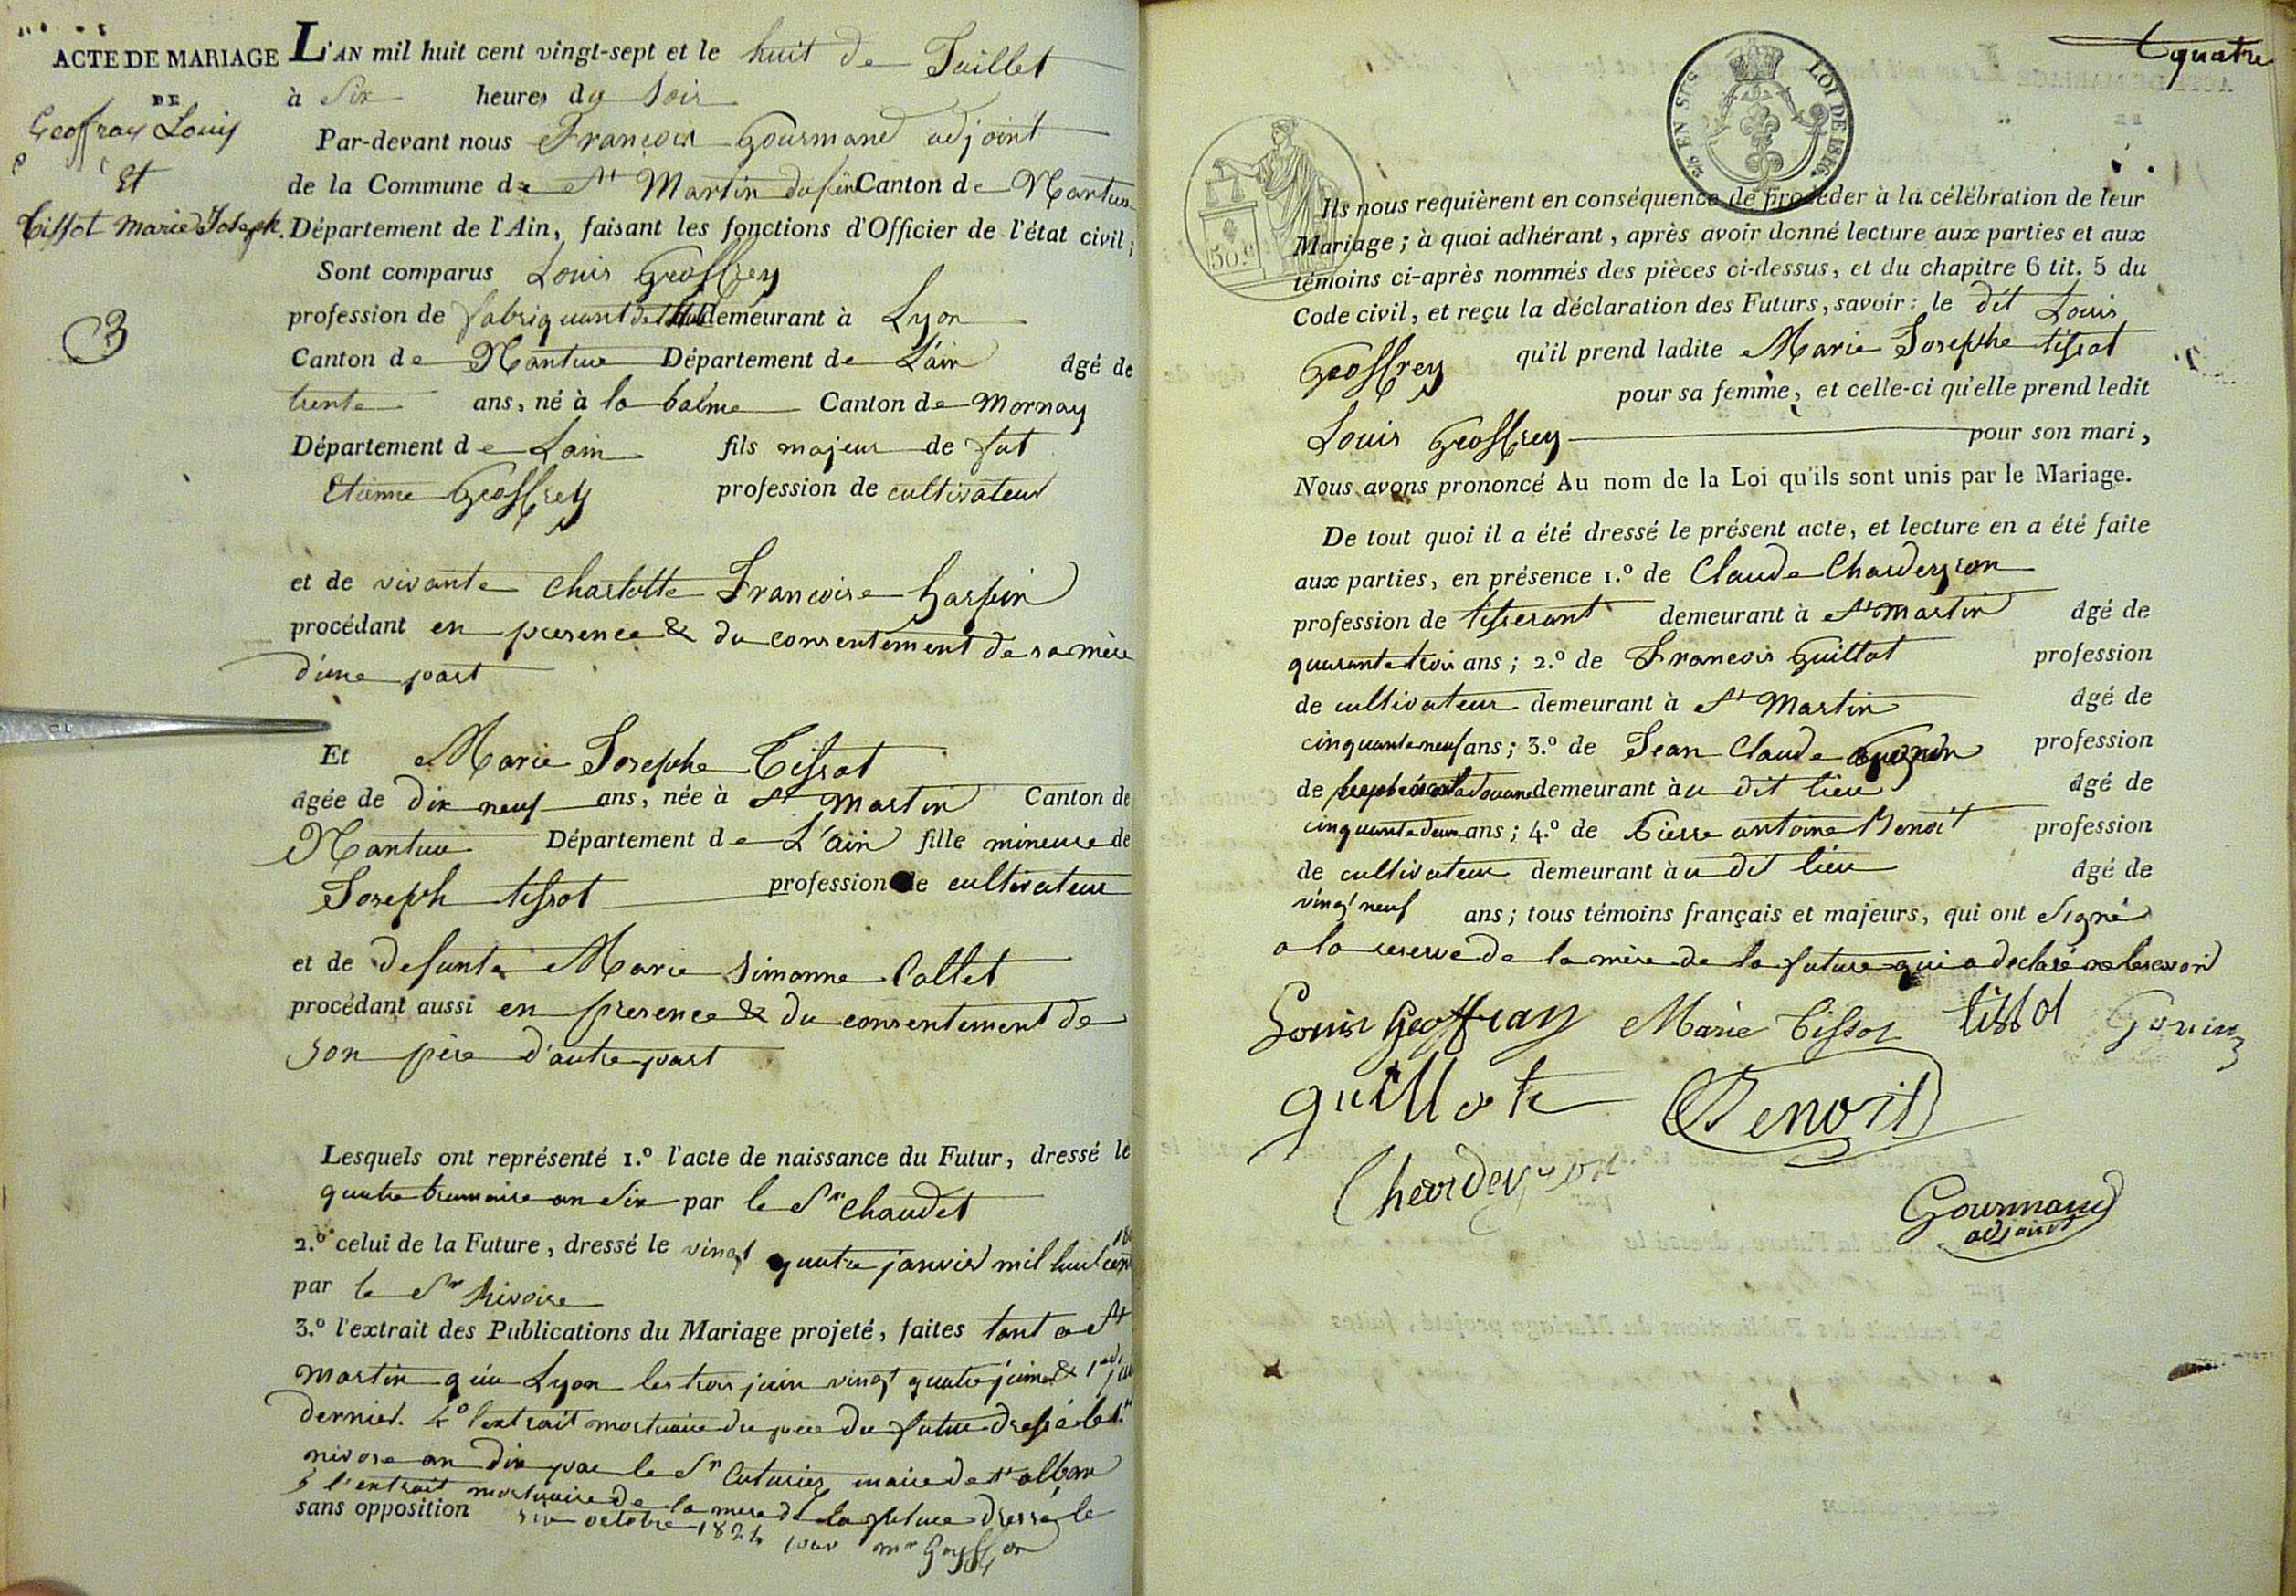 ACTE DE MARIAGE
DE
Geoffray Louis
Et
Tissot Marie Joseph.
3
L'AN mil huit cent vingt-sept et le huit de Juillet
à Six heures du Soir
Par-devant nous François Gourmand adjoint
de la Commune de St Martin du frêne Canton de Nantua
Département de l'Ain, faisant les fonctions d'Officier de l'état civil;
Sont comparus Louis Geoffrey
profession de fabriquant de demeurant à Lyon
Canton de Nantua Département de L'ain âgé de
trente ans, né à la balme Canton de Mornay
Département de Lain fils majeur de fut
Etienne Geoffrey profession de cultivateur
et de vivante Charlotte Francoise harpin
procédant en presence & du consentement de sa mère
d'une part
Et Marie Josephe Tissot
âgée de dix neuf ans, née à St Martin Canton de
Nantua Département de L'ain fille mineure de
Joseph tissot profession de cultivateur
et de defunte Marie Simonne Collet
procédant aussi en presence & du consentement de
son père d'autre part
Lesquels ont représenté 1.º l'acte de naissance du Futur, dressé le
quatre brumaire an Six par le Sr Chaudet
2.º celui de la Future, dressé le vingt quatre janvier mil huit cent
par le Sr Rivoire
3.º l'extrait des Publications du Mariage projeté, faites tant a St
Martin qu'a Lyon les trois juin vingt quatre juin & 1er
dernier. 4º l'extrait mortuaire du père du futur dressé le
nivose an dix par le Sr Cuturier maire de St alban
5 l'extrait mortuaire de la mere de la future dressé le
sans opposition six octobre 1824 par mr
quatre
EN SUS
LOI DE 1816.
50.c
Ils nous requièrent en conséquence de procéder à la célébration de leur
Mariage; à quoi adhérant, après avoir donné lecture aux parties et aux
témoins ci-après nommés des pièces ci-dessus, et du chapitre 6 tit. 5 du
Code civil, et reçu la déclaration des Futurs, savoir: le dit Louis
Geoffrey qu'il prend ladite Marie Josephe tissot
pour sa femme, et celle-ci qu'elle prend ledit
Louis Geoffrey pour son mari,
Nous avons prononcé Au nom de la Loi qu'ils sont unis par le Mariage.
De tout quoi il a été dressé le présent acte, et lecture en a été faite
aux parties, en présence 1.º de Claude Chardeyron
profession de tisserant demeurant à St Martin âgé de
quarante trois ans; 2.º de Francois Guillot profession
de cultivateur demeurant à St Martin âgé de
cinquante neuf ans; 3.º de Jean Claude profession
de demeurant au dit lieu âgé de
cinquante deux ans; 4.º de Pierre antoine Benoit profession
de cultivateur demeurant au dit lieu âgé de
vingt neuf ans; tous témoins français et majeurs, qui ont Signé
a la reserve de la mère de la future qui a declaré ne le savoir
Louis Geoffray Marie Tissot tissot Gouin
guillot Benoit
Chardeyron
Gourmand
adjoint